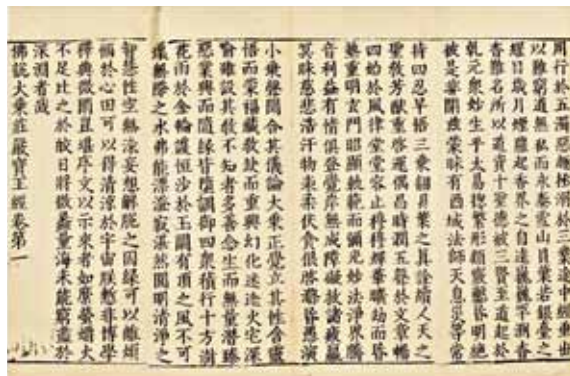 用行於五濁惡趣拯溺於三業途中經垂世
以難窮道無私而永泰雪山貝葉若銀臺之
耀目歲月煙蘿起香界之自遠巍巍罕測杳
杳難名所以道資十聖德被三賢至道起於
乾元衆妙生乎太易揔繁形類竅鑿昏明絕
彼是非開茲蒙昧有西域法師天息災等常
持四忍早悟三乘翻貝葉之真詮續人天之
聖教芳猷重啓運偶昌時潤五聲於文章暢
四始於風律堂堂容止穆穆輝華曠劫而昏
墊重明玄門昭顯軌範而彌光妙法淨界騰
音利益有情俱登覺岸無成障礙救諸疲羸
冥昧慈悲浩汗物表柔伏貪很啓滌昏愚演
小乘聲聞合其儀論大乘正覺立其性含靈
悟而蒙福藏教缺而重興幻化迷途火宅深
喻雖設其教不知者多善念生而無量潛臻
惡業興而隨緣皆墮調御四衆積行十方澍
花雨於金輪護恒沙於玉闕有頂之風不可
壞無際之水弗能漂澄寂湛然圓明清淨之
智慧性空無染妄想解脫之因緣可以離煩
惱於心田可以得清涼於宇宙朕慙非博學
釋典微閑豈堪序文以示來者如縻螢爝火
不足比之於皎日將微蠡量海未能窮盡於
深淵者哉
佛說大乘莊嚴寶王經卷第一